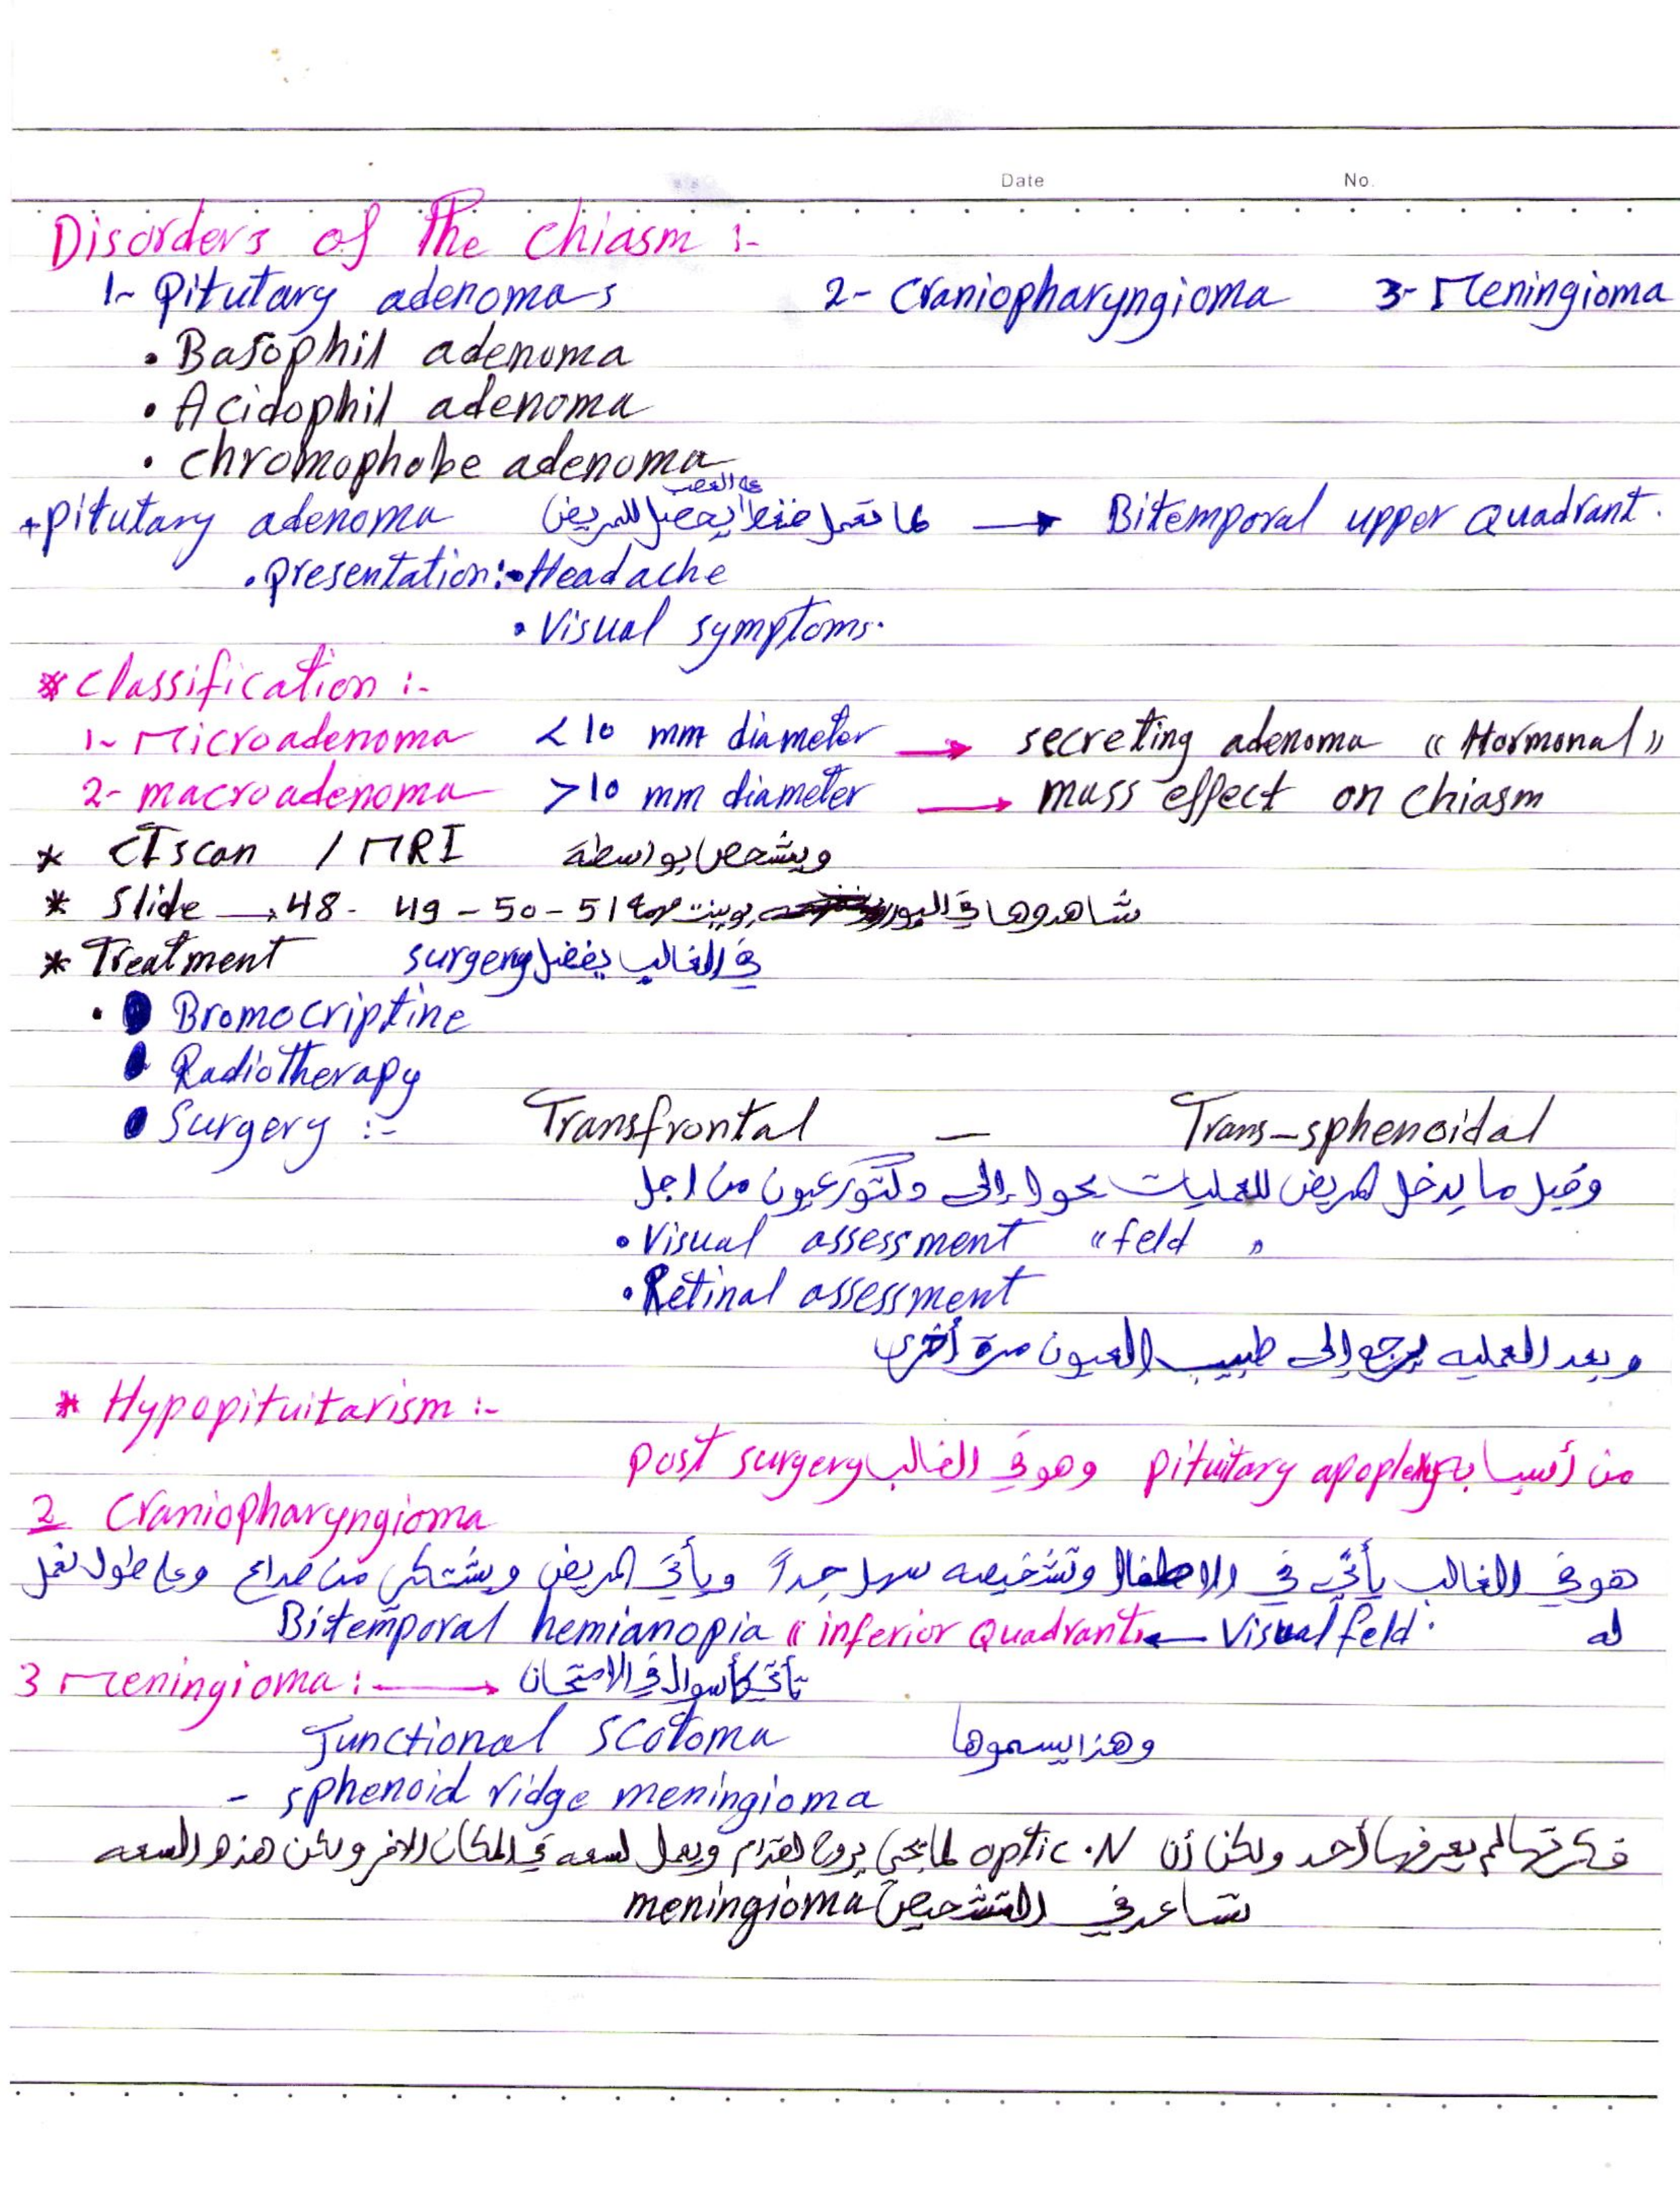 Date No.
Disorders of The Chiasm :-
1- Pitutary adenomas 2- Craniopharyngioma 3- Meningioma
• Basophil adenoma
• Acidophil adenoma
• chromophobe adenoma
على العصب
+ pitutary adenoma لما تعمل ضغط يحصل للمريض → Bitemporal upper Quadrant.
• presentation:• Headache
• Visual symptoms.
* Classification :-
1- Microadenoma < 10 mm diameter → secreting adenoma (( Hormonal ))
2- macroadenoma > 10 mm diameter → mass effect on chiasm
* CT scan / MRI ويشخص بواسطة
* Slide → 48 - 49 - 50 - 51 شاهدوها في البور بوينت
* Treatment في الغالب يفضل surgery
• Bromocriptine
• Radiotherapy
• Surgery :- Transfrontal — Trans-sphenoidal
وقبل ما يدخل المريض للعمليات يحول إلى دكتور عيون من اجل
• Visual assessment "feld "
• Retinal assessment
وبعد العمليه يرجع إلى طبيب العيون مرة أخرى
* Hypopituitarism :-
من أسبابه pituitary apoplexy وهو في الغالب post surgery
2 Craniopharyngioma
هو في الغالب يأتي في الاطفال وتشخيصه سهل جداً ويأتي المريض ويشتكي من صداع وعلى طول نعمل
له Visual feld. ← Bitemporal hemianopia (( inferior Quadrant
3 Meningioma : → تأتي كأسوال في الامتحان
Junctional Scotoma وهذا يسموها
- sphenoid ridge meningioma
فكرتها لم يعرفها أحد ولكن أن optic .N لما يجي يروح لقدام ويعمل لسعه في المكان الاخر ولكن هذه السعه
تساعد في التشخيص meningioma